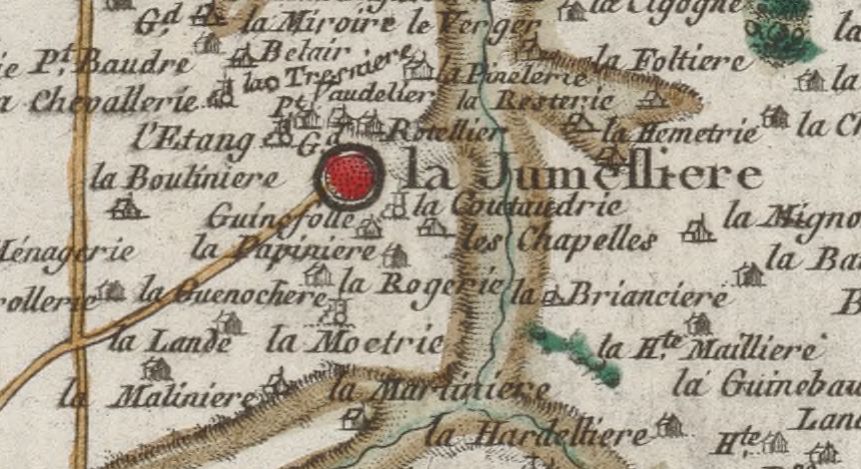 la Cigogne
G.d
la Miroire le Verger
la
Belair
la Foltiere
P.t Baudre
la Tresniere
la Pinelerie
la
Chevallerie
P.t Vaudelier
la Resterie
l'Etang
G.d
Rotellier
la Hemetrie
la Ch
la Jumelliere
la Bouliniere
Guinefolle
la Coutaudrie
la Migno
Ménagerie
la Papiniere
les Chapelles
la Ba
rollerie
la Guenochere
la Rogerie
la Brianciere
la Lande
la Moetrie
la H.te Mailliere
la Maliniere
la Martiniere
la Guinebau
la Hardelliere
Land
H.te